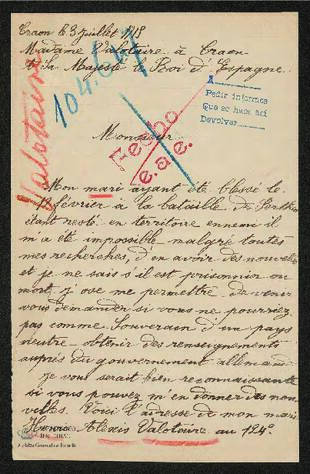 Craon le 3 juillet 1915
Madame Valotaire à Craon
A Sa Majesté le Roi d'Espagne.
Valotaire
104.
A
Pedir informes
Que se hace así
Devolver
Monsieur
Fecho
e.a.e.
Mon mari ayant été blessé le
12 février à la bataille de Perthes
étant resté en territoire ennemi il
m'a été impossible malgré toutes
mes recherches, d'en avoir des nouvelles
et je ne sais s'il est prisonnier ou
mort, j'ose me permettre de venir
vous demander si vous ne pourriez
pas comme Souverain d'un pays
neutre obtenir des renseignements
auprès du gouvernement allemand
je vous serait bien reconnaissante
si vous pouvez m'en donner des nou-
velles. Voici l'adresse de mon mari
Alexis Valotaire au 124e